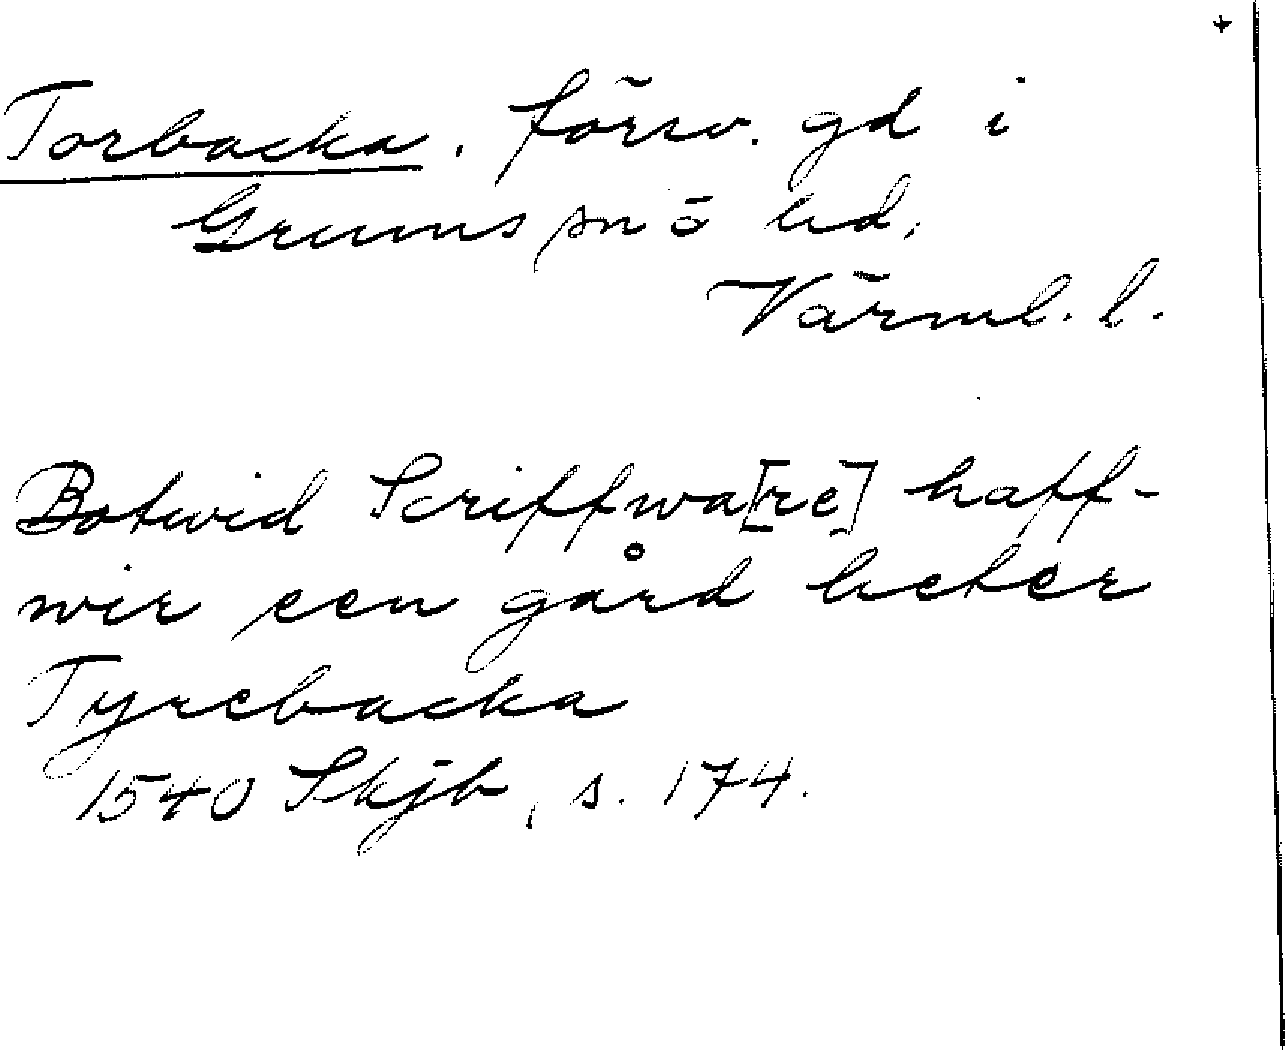 +
Torbacka. försv. gd i
Grums sn o hd,
Värml. l.
Botwid Scriffwa[re] haff-
wir een gård heter
Tyrebacka
1540 Skjb, s. 174.